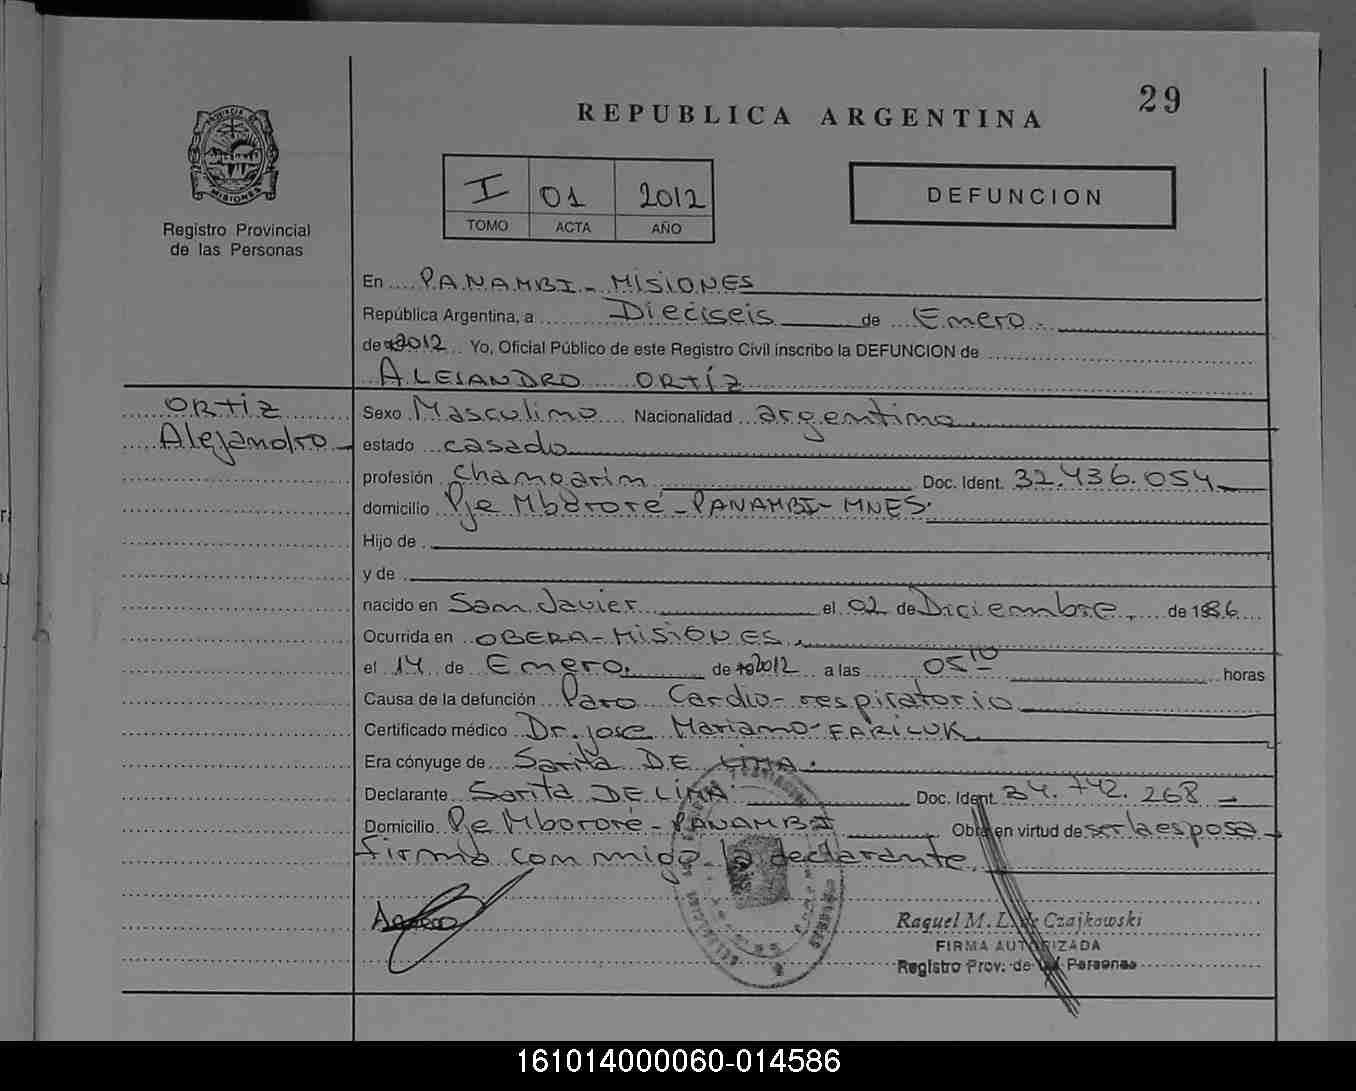 29
REPUBLICA ARGENTINA
PROVINCIA DE
MISIONES
Registro Provincial
de las Personas
I 01 2012
TOMO ACTA AÑO
DEFUNCION
En PANAMBI - MISIONES
República Argentina, a Dieciseis de Enero.
de 2012 Yo, Oficial Público de este Registro Civil inscribo la DEFUNCION de
ALEJANDRO ORTÍZ
ORTIZ
Alejandro
Sexo Masculino Nacionalidad argentino
estado casado
profesión Chamgarin Doc. Ident. 32.436.054
domicilio Pje Mbororé - PANAMBI - MNES.
Hijo de
y de
nacido en San Javier el 02 de Diciembre, de 1986
Ocurrida en OBERA - MISIONES,
el 14 de Enero. de 2012 a las 05 10 horas
Causa de la defunción Paro Cardio-respiratorio
Certificado médico Dr. Jose Mariano FARILUK
Era cónyuge de Sarita DE LIMA.
Declarante Sarita DE LIMA Doc. Ident. 34.742.268
Domicilio Pje Mbororé - PANAMBI Obra en virtud de ser la esposa
firma conmigo la declarante.
Raquel M. L. de Czajkowski
FIRMA AUTORIZADA
Registro Prov. de las Personas
161014000060-014586